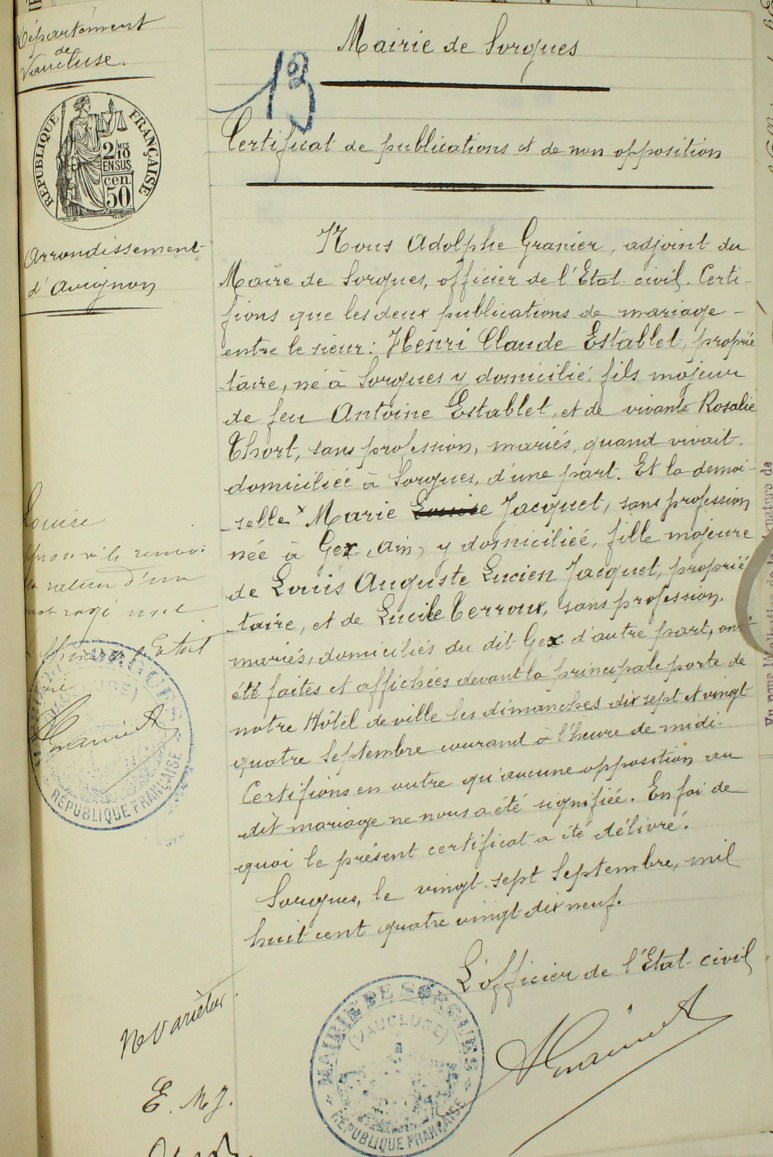 Département
de
Vaucluse.
RÉPUBLIQUE FRANÇAISE
2/10
EN SUS
cen
50
Arrondissement
d'Avignon
Mairie de Sorgues
13
Certificat de publications et de non opposition
Nous Adolphe Granier, adjoint du
Maire de Sorgues, officier de l'Etat civil. Certi-
fions que les deux publications de mariage
entre le sieur : Henri Claude Establet, proprié
taire, né à Sorgues y domicilié, fils majeur
de feu Antoine Establet, et de vivante Rosalie
Thort, sans profession, mariés, quand vivait,
domiciliée à Sorgues, d'une part. Et la demoi-
selle x Marie Jacquet, sans profession
née à Gex, Ain, y domiciliée, fille majeure
de Louis Auguste Lucien Jacquet, proprié
taire, et de Lucile Terroux, sans profession.
mariés, domiciliés du dit Gex d'autre part, ont
été faites et affichées devant la principale porte de
notre Hôtel de ville les dimanches dix sept et vingt
quatre Septembre courand à l'heure de midi.
Certifions en outre qu'aucune opposition au
dit mariage ne nous a été signifiée. En foi de
quoi le présent certificat a été délivré.
Sorgues, le vingt-sept Septembre, mil
huit cent quatre vingt dix neuf.
L'officier de l'Etat civil
Louise
approuvé le renvoi
d'un
mot rayé nul
Etat
RÉPUBLIQUE FRANÇAISE
MAIRIE DE SORGUES
(VAUCLUSE)
RÉPUBLIQUE FRANÇAISE
Ne Varietur.
E. M. J.